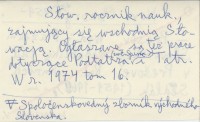 Słow. rocznik nauk.,
zajmujący się wschodnią Sło-
wacją. Ogłaszane są też prace
dotyczące Podtatrza i Tatr.
W r. 1974 tom 16.
Spoločenskovedný zborník východného
Slovenska.